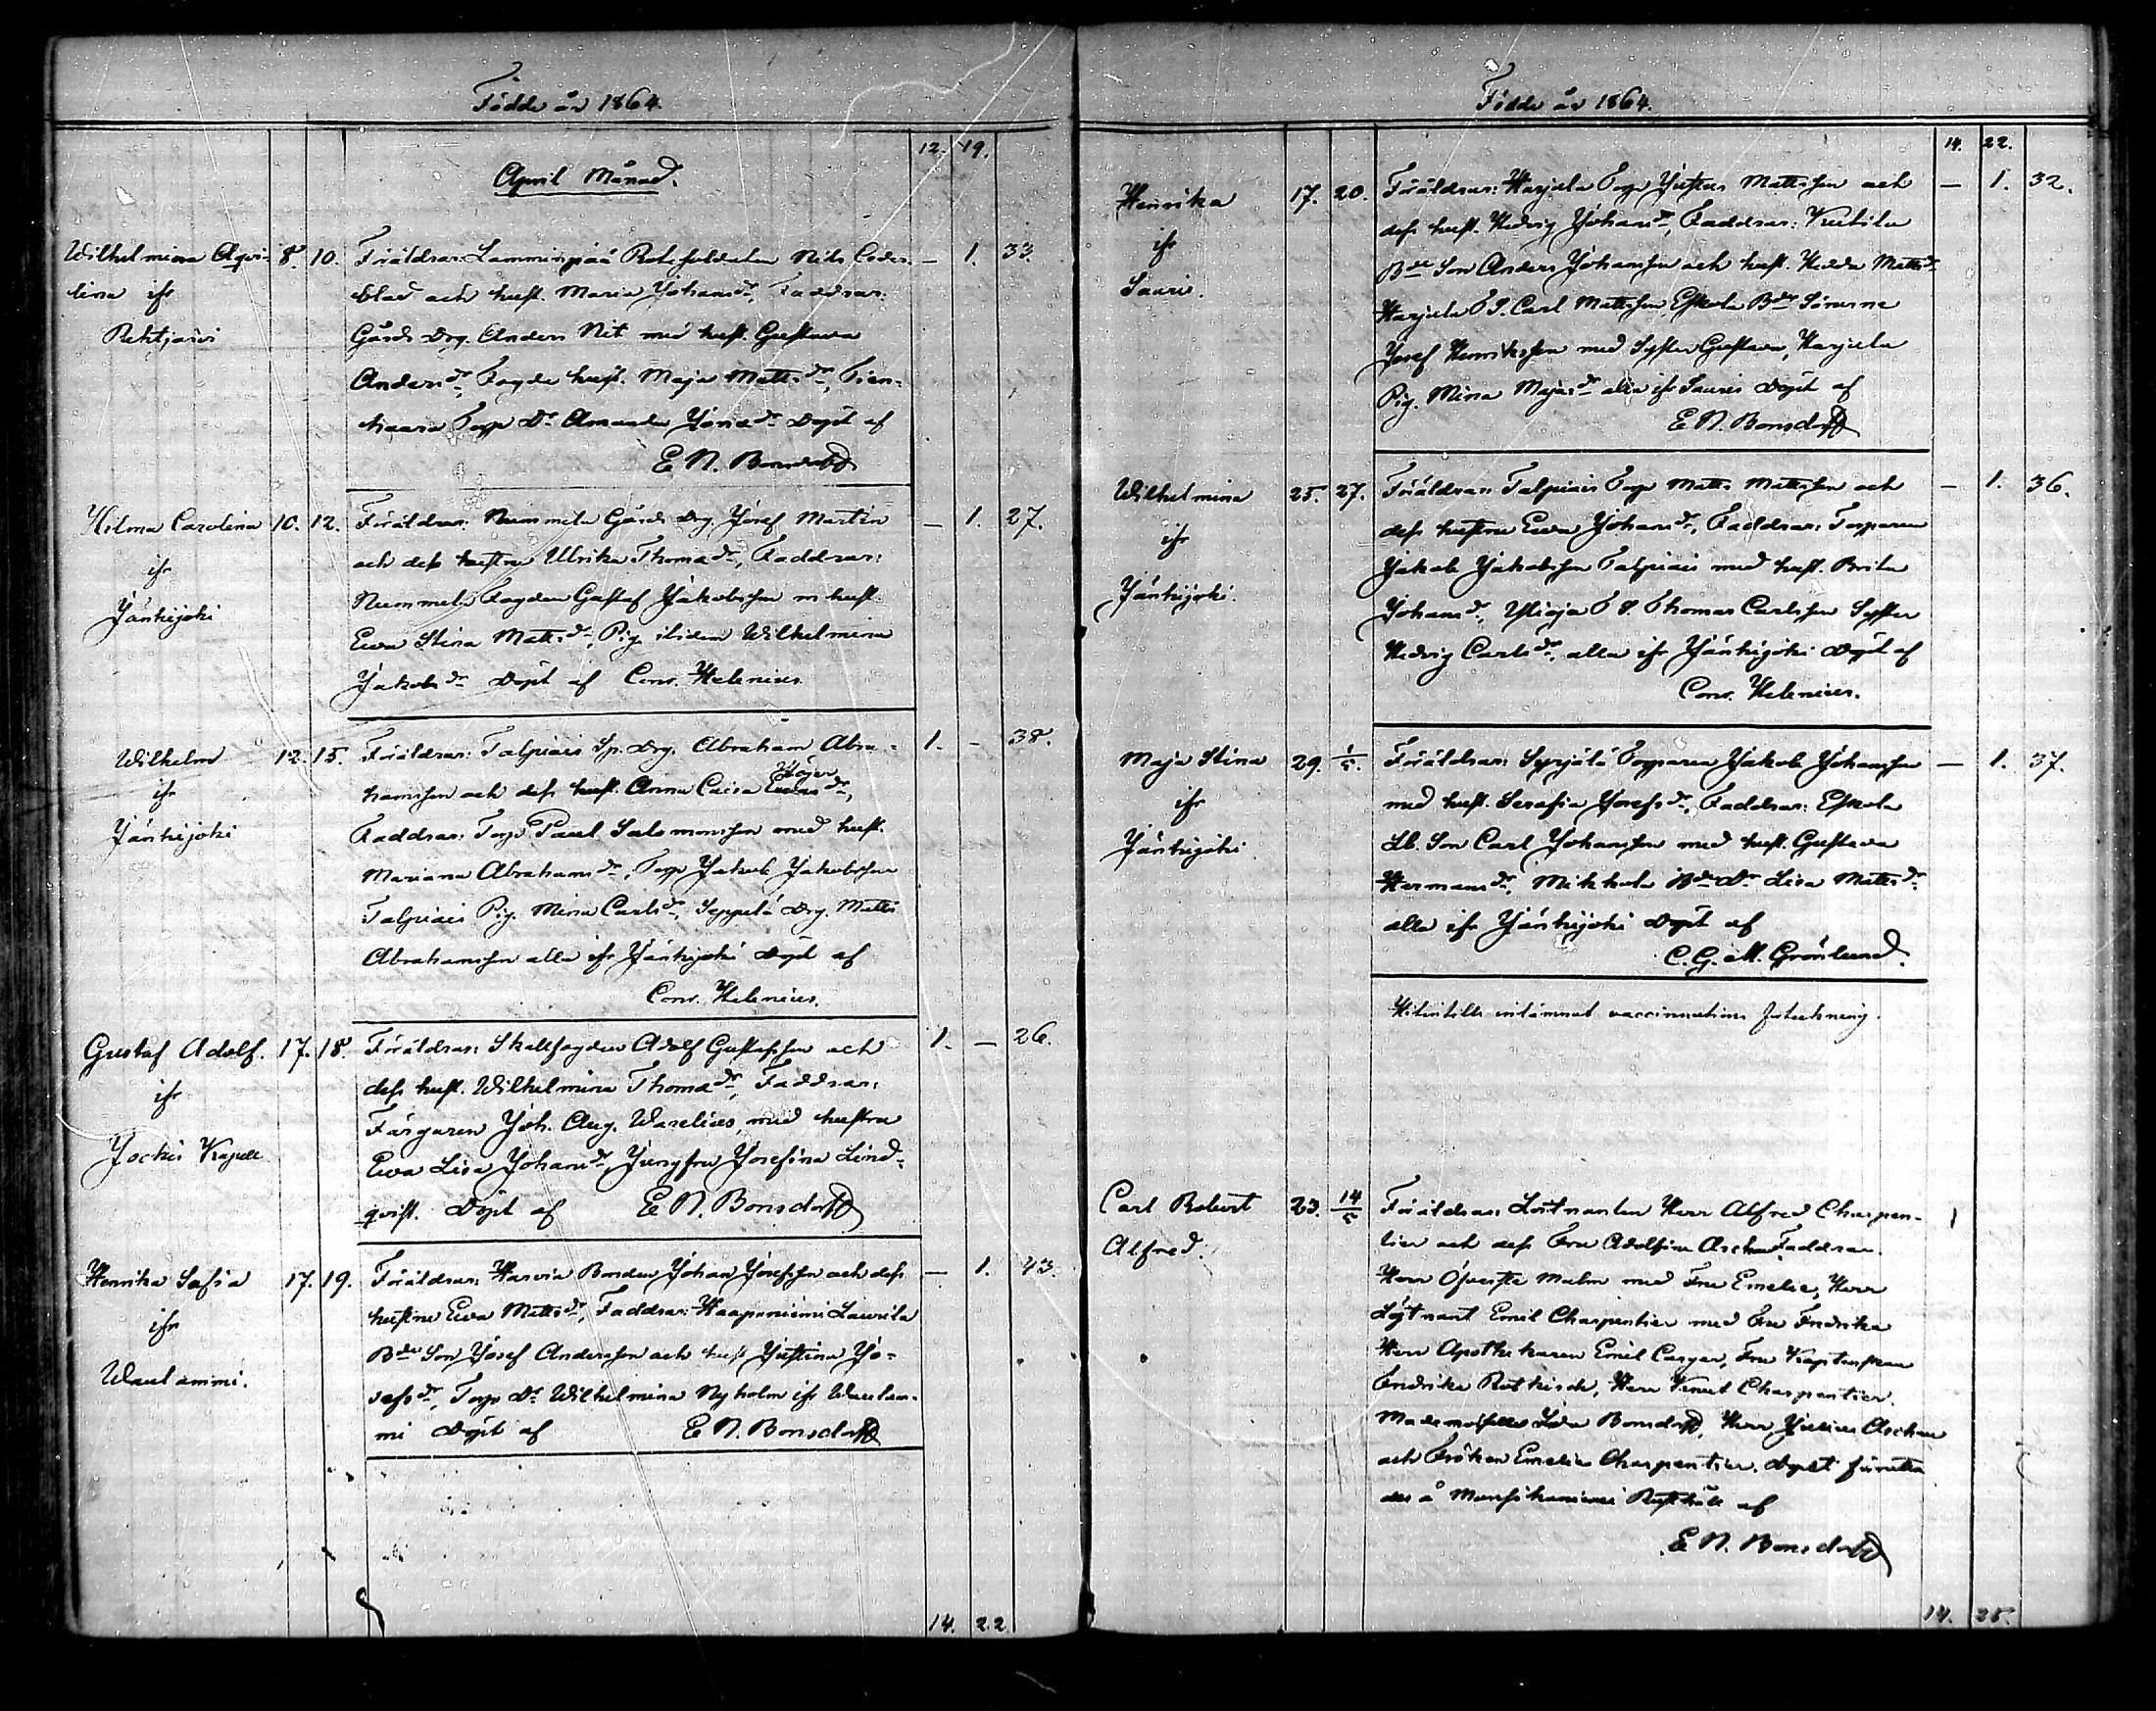 Födde år 1864.
12. 19.
April Månad.
Wilhelmina Aqvi- 8. 10. Föräldrar: Lamminpää Rotesoldaten Nils Ceder- — 1. 33.
lina ifr blad och hust. Maria Johansdr, Faddrar:
Rehtijärvi Gårds Drg. Anders Nit med hust. Gustava
Andersdr, Fogde hust. Maja Mattsdr, Pien-
haara Torp Dr Amanda Jonasdr Döpt af
E N. Bonsdorff
Hilma Carolina 10. 12. Föräldrar: Nummela Gårds Drg. Josef Martin — 1. 27.
ifr och dess hustru Ulrika Thomasdr, Faddrar:
Jänhijoki Nummela Fogden Gustaf Jakobsson m hust.
Ewa Stina Mattsdr, Pig. ibidem Wilhelmina
Jakobsdr Döpt af Conr. Helenius.
Wilhelm 12. 15. Föräldrar: Talpiais Sp. Drg. Abraham Abra- 1. — 38.
ifr hamsson och dess hust. Anna Caisa Höjer
Jänhijoki Faddrar: Torp. Paul Salomonsson med hust.
Mariana Abrahamsdr, Torp Jakob Jakobsson
Talpiais Pig. Mina Carlsdr, Seppälä Drg. Matts
Abrahamsson alla ifr Jänhijoki Döpt af
Conr. Helenius.
Gustaf Adolf. 17. 18. Föräldrar: Skallfogden Adolf Gustafsson och 1. — 26.
ifr dess hust. Wilhelmina Thomasdr, Faddrar:
Jockis Kapell Färgaren Joh. Aug. Waselius, med hustru
Ewa Lisa Johansdr, Jungfru Josefina Lind-
qvist. Döpt af E N. Bonsdorff
Henrika Sofia 17. 19. Föräldrar: Harvia Bonden Johan Josefsson och dess — 1. 43.
ifr hustru Ewa Mattsdr, Faddrar: Haapaniemi Laurila
Waulammi. Bde Son Josef Andersson och hust Justina Jo-
sefsdr, Torp Dr Wilhelmina Nyholm ifr Waulam-
mi Döpt af E N. Bonsdorff
14. 22
Födde år 1864.
14. 22.
Henrika 17. 20. Föräldrar: Harjula Torp Justus Mattsson och — 1. 32.
ifr dess hust. Hedvig Johansdr, Faddrar: Kutila
Sauris. Bde Son Anders Johansson och hust. Hedda Mattsdr
Harjula T S. Carl Mattsson, Eskola Bde Sönerne
Josef Henriksson med Syster Gustava, Harjula
Pig. Mina Majasdr alla ifr Sauris Döpt af
E N. Bonsdorff
Wilhelmina 25. 27. Föräldrar: Talpiais Torp Matts Mattsson och — 1. 36.
ifr dess hustru Ewa Johansdr, Faddrar: Torparen
Jänhijoki. Jakob Jakobsson Talpiais med hust. Brita
Johansdr, T S. Thomas Carlsson Syster
Hedvig Carlsdr, alla ifr Jänhijoki Döpt af
Conr. Helenius.
Maja Stina 29. 1/5. Föräldrar: Syrjälä Torparen Jakob Johansson — 1. 37.
ifr med hust. Serafia Josefsdr, Faddrar: Eskola
Jänhijoki. Lb. Son Carl Johansson med hust. Gustava
Hermansdr, Mikkola Bde Dr Lisa Mattsdr
alla ifr Jänhijoki Döpt af
C. G. M. Grönlund.
Hitintills inlämnat vaccinnations förtekning.
Carl Robert 23. 14/5 Föräldrar: Löjtnanten Herr Alfred Charpen-
Alfred. tier och dess Fru Adolfine Aschan Faddrar.
Herr Öfverste Malm med Fru Emelie, Herr
Löjtnant Emil Charpentier med Fru Fredrika
Herr Apothekaren Emil Casper, Fru Kaptenskan
Fredrika Rotkirch, Herr Knut Charpentier.
Mademoiselle Lida Bonsdorff, Herr Julius Aschan
och Fröken Emelie Charpentier. Dopet förrätta
des å Mansikaniemi Rusthåll af
E N. Bonsdorff
14. 25.